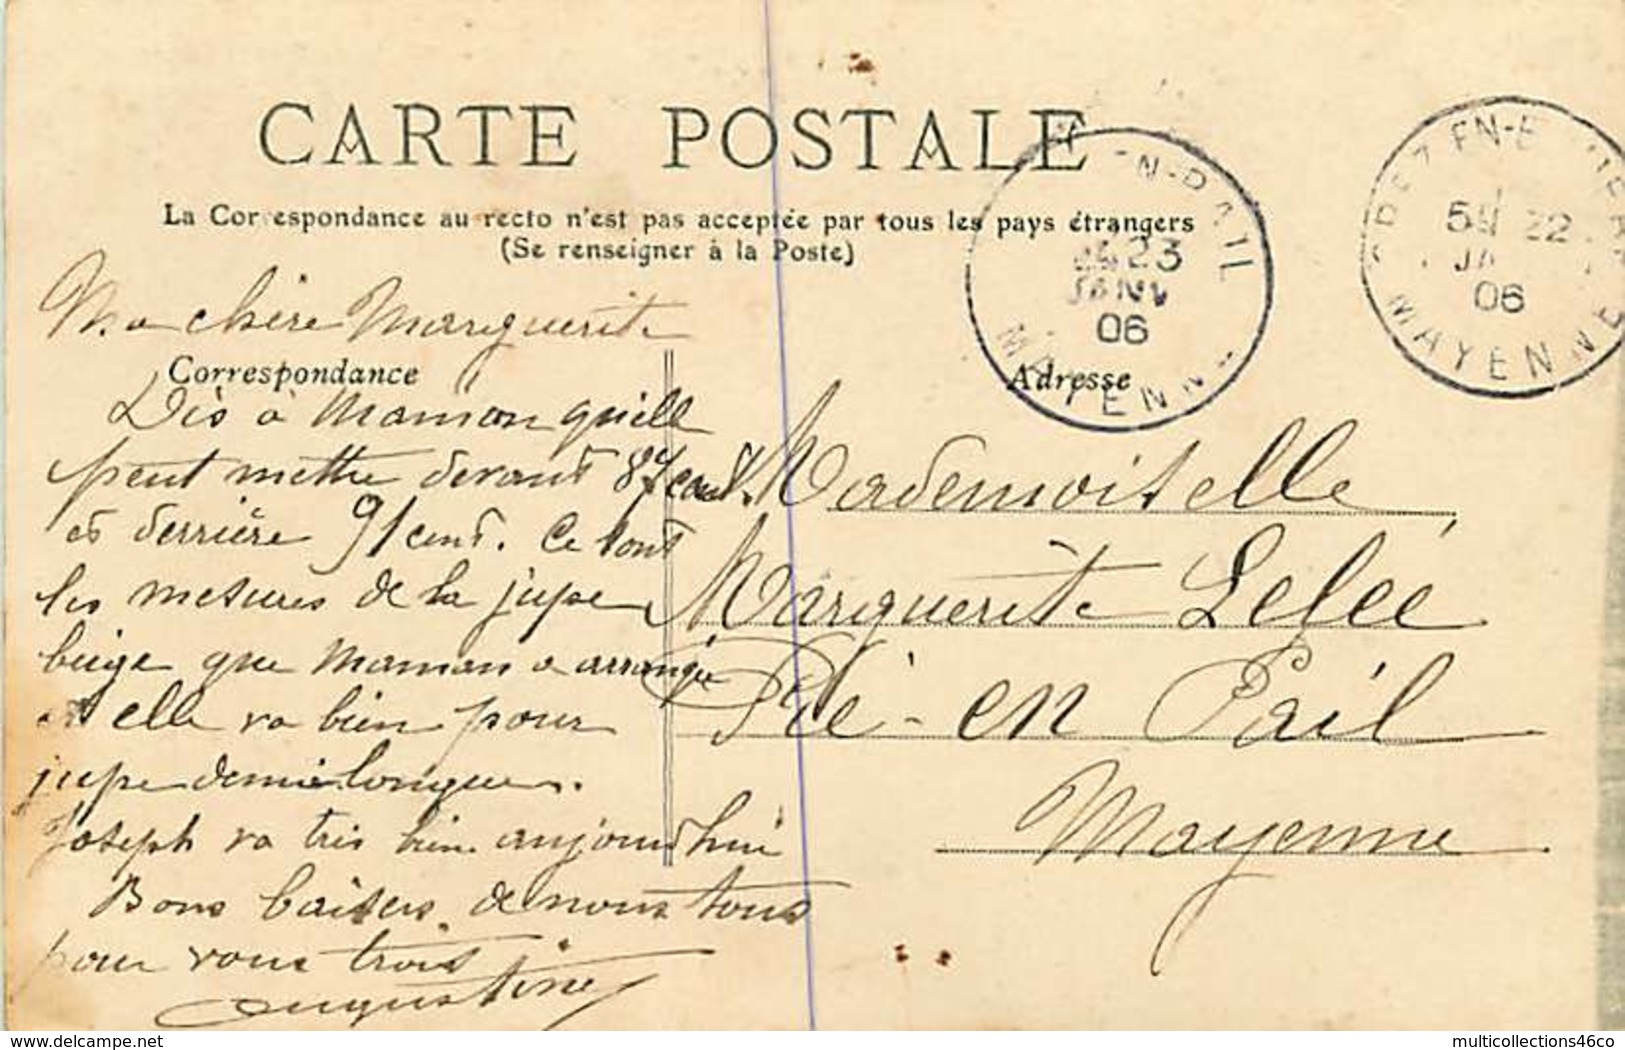 CARTE POSTALE
La Correspondance au recto n'est pas acceptée par tous les pays étrangers
(Se renseigner à la Poste)
EN-PAIL
23
JANV
06
MAYENNE
EN-E
5 22
JA
06
MAYENNE
Ma chère Marguerite
Correspondance
Adresse
Dis à Maman qu'elle
peut mettre devant 87 cent.
et derrière 91 cent. Ce sont
les mesures de la jupe
beige que Maman a arrangée
et elle va bien pour
jupe demie longue.
Joseph va très bien aujourd'hui
Bons baisers de nous tous
pour vous trois
Augustine
Mademoiselle
Marguerite Lelée
Pré-en Pail
Mayenne
delcampe.net
multicollections46co